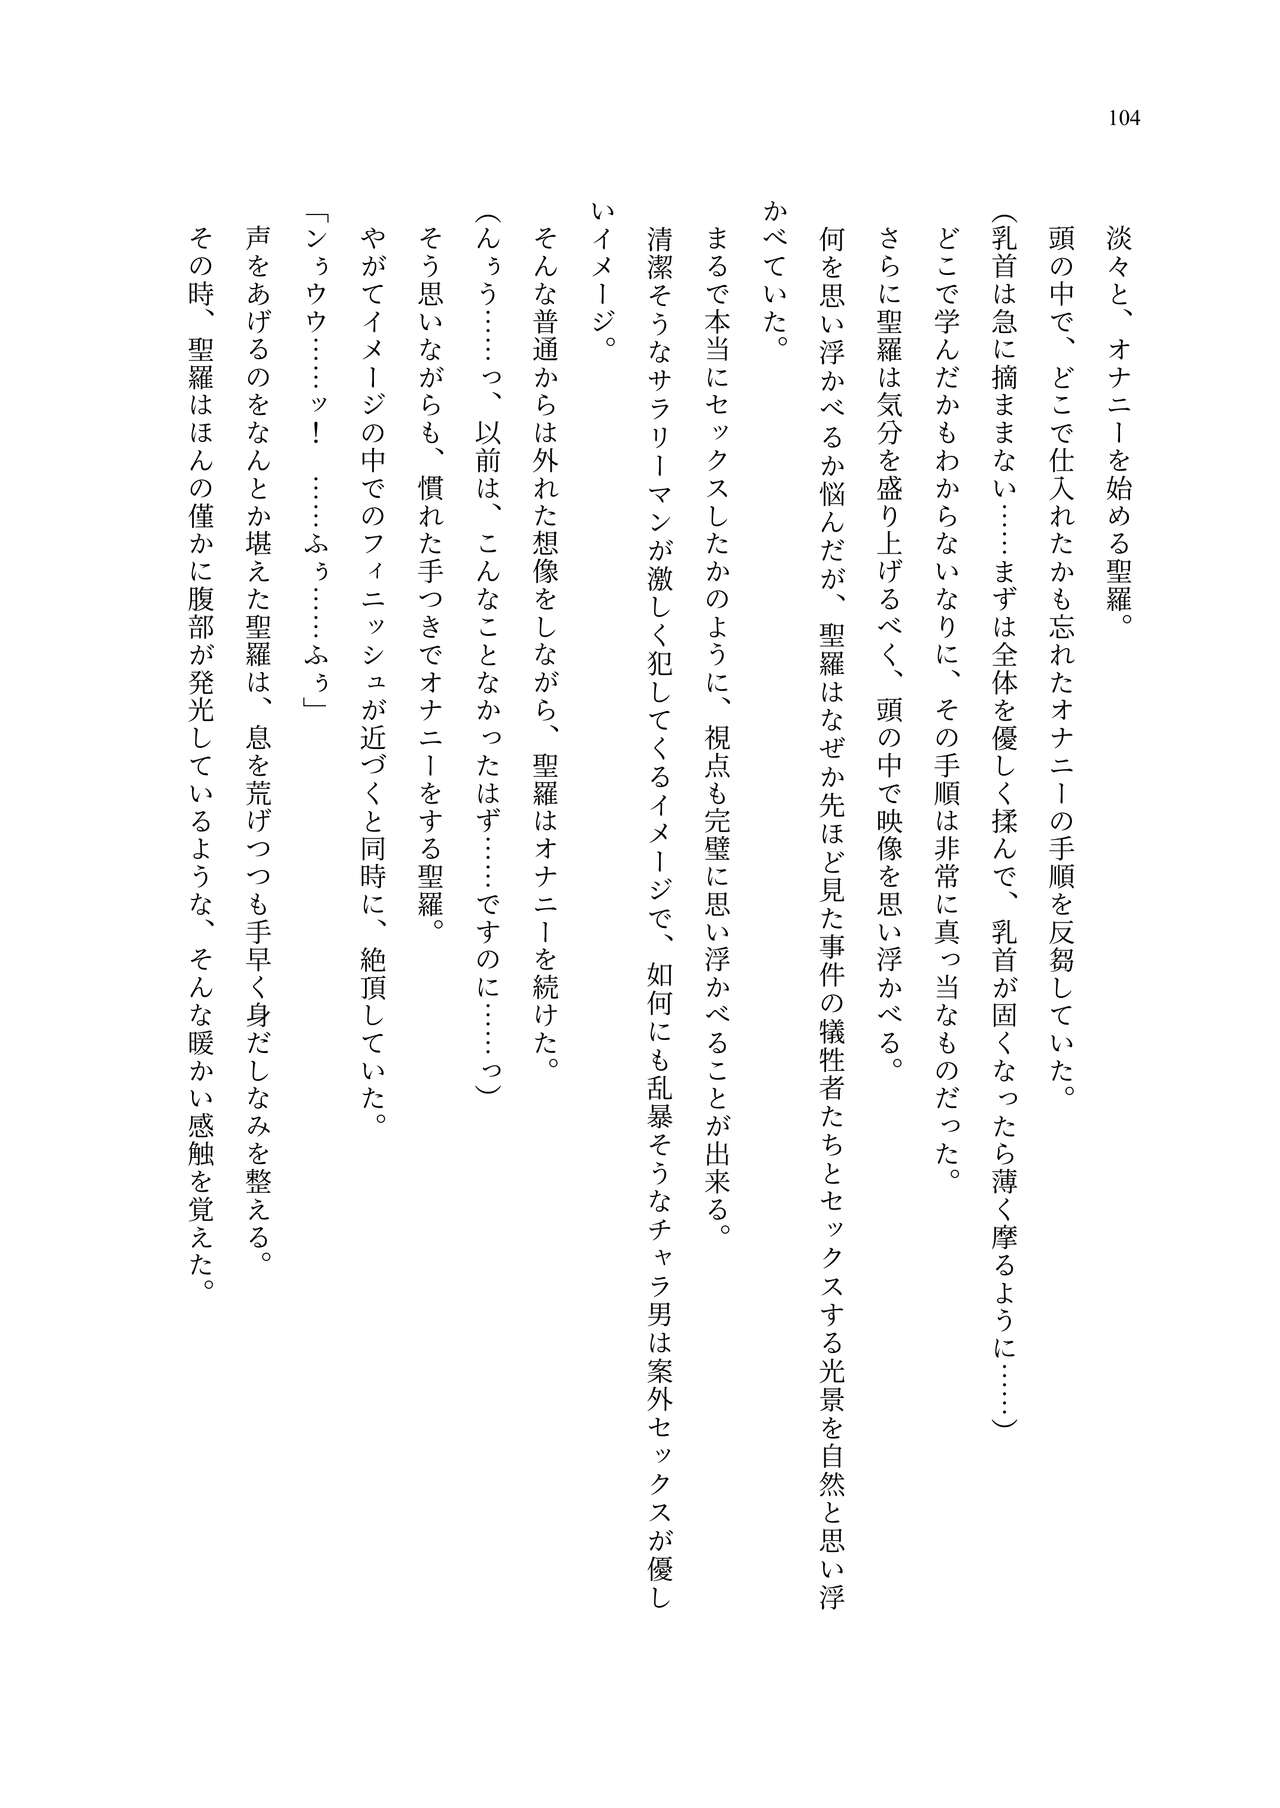 104
淡々と、オナニーを始める聖羅。
頭の中で、どこで仕入れたかも忘れたオナニーの手順を反芻していた。
（乳首は急に摘ままない……まずは全体を優しく揉んで、乳首が固くなったら薄く摩るように……）
どこで学んだかもわからないなりに、その手順は非常に真っ当なものだった。
さらに聖羅は気分を盛り上げるべく、頭の中で映像を思い浮かべる。
何を思い浮かべるか悩んだが、聖羅はなぜか先ほど見た事件の犠牲者たちとセックスする光景を自然と思い浮
かべていた。
まるで本当にセックスしたかのように、視点も完璧に思い浮かべることが出来る。
清潔そうなサラリーマンが激しく犯してくるイメージで、如何にも乱暴そうなチャラ男は案外セックスが優し
いイメージ。
そんな普通からは外れた想像をしながら、聖羅はオナニーを続けた。
（んぅう……っ、以前は、こんなことなかったはず……ですのに……っ）
そう思いながらも、慣れた手つきでオナニーをする聖羅。
やがてイメージの中でのフィニッシュが近づくと同時に、絶頂していた。
「ンぅウウ……ッ！　……ふぅ……ふぅ」
声をあげるのをなんとか堪えた聖羅は、息を荒げつつも手早く身だしなみを整える。
その時、聖羅はほんの僅かに腹部が発光しているような、そんな暖かい感触を覚えた。